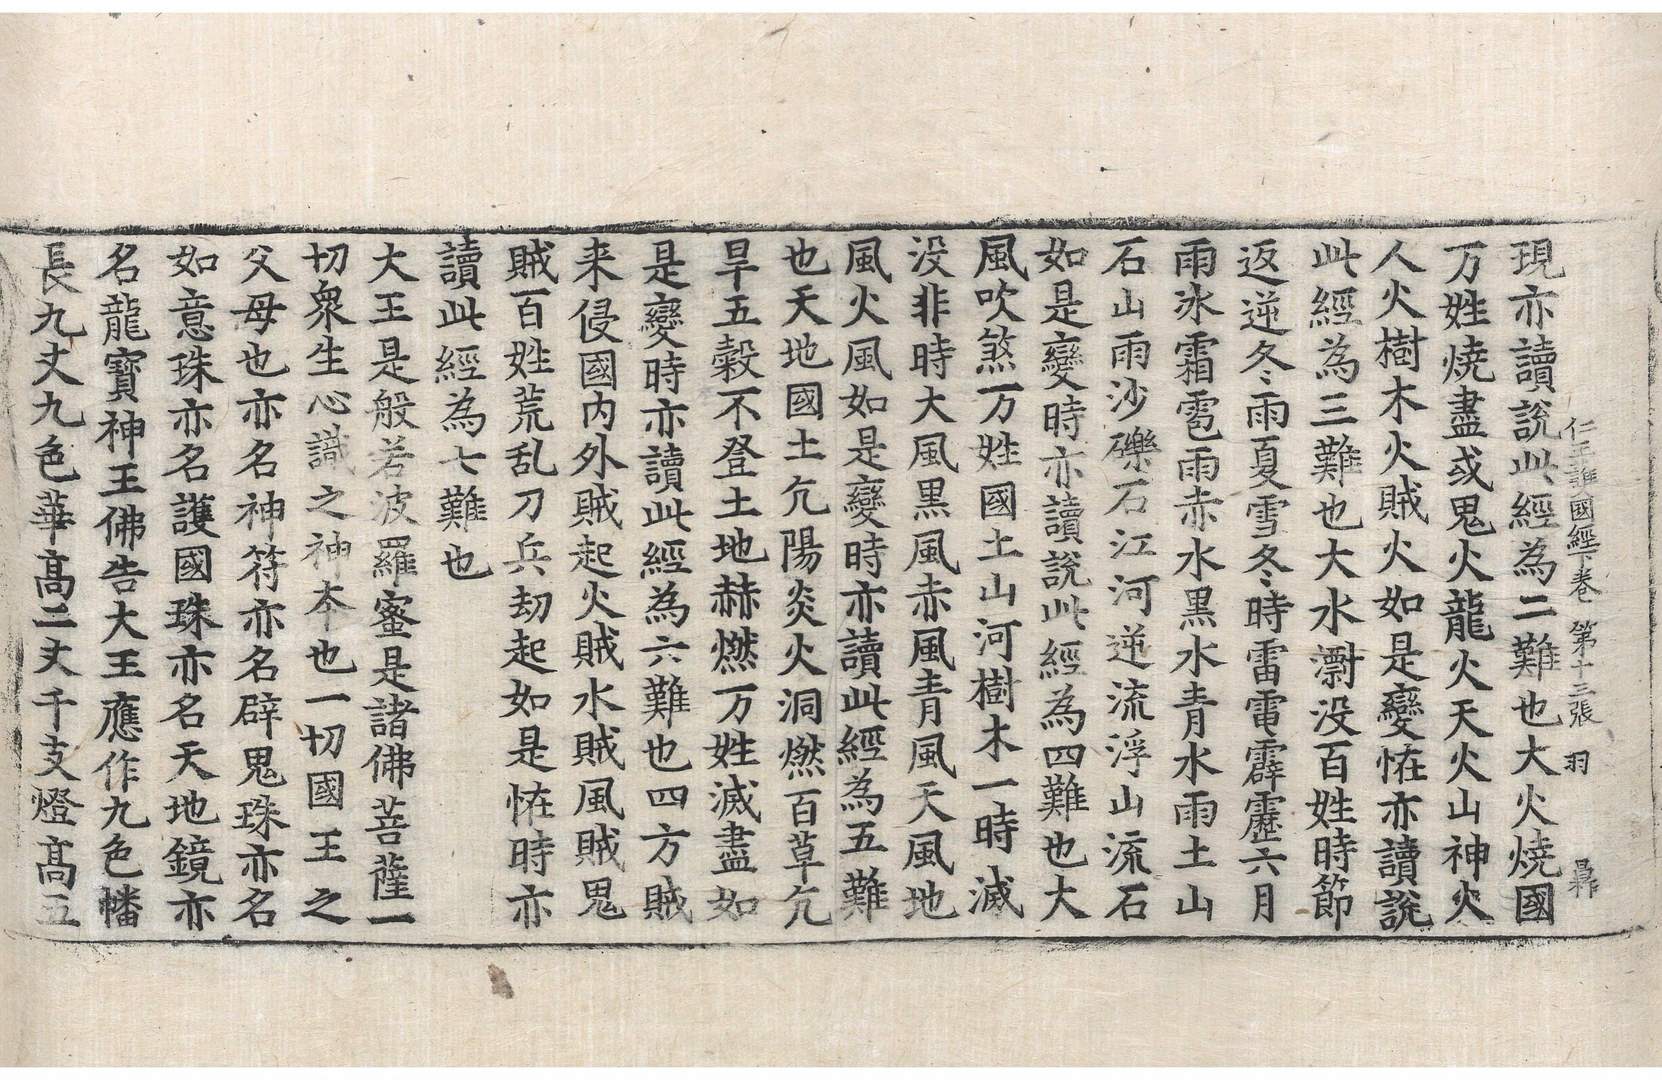 仁王護國經下卷 第十三張 羽
現亦讀說此經為二難也大火燒國
万姓燒盡或鬼火龍火天火山神火
人火樹木火賊火如是變恠亦讀說
此經為三難也大水㵱没百姓時節
返逆冬雨夏雪冬時雷電霹靂六月
雨冰霜雹雨赤水黒水青水雨土山
石山雨沙礫石江河逆流浮山流石
如是變時亦讀說此經為四難也大
風吹煞万姓國土山河樹木一時滅
没非時大風黒風赤風青風天風地
風火風如是變時亦讀此經為五難
也天地國土亢陽炎火洞燃百草亢
旱五穀不登土地赫燃万姓滅盡如
是變時亦讀此經為六難也四方賊
来侵國内外賊起火賊水賊風賊鬼
賊百姓荒乱刀兵劫起如是恠時亦
讀此經為七難也
大王是般若波羅蜜是諸佛菩薩一
切衆生心識之神夲也一切國王之
父母也亦名神符亦名辟鬼珠亦名
如意珠亦名護國珠亦名天地鏡亦
名龍寶神王佛告大王應作九色幡
長九丈九色華髙二丈千支燈髙五